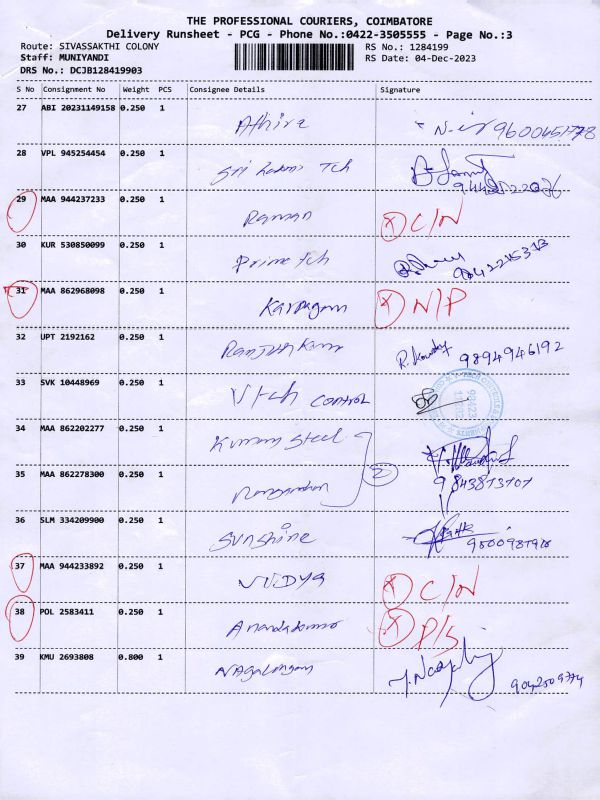 THE PROFESSIONAL COURIERS, COIMBATORE
Delivery Runsheet - PCG - Phone No.:0422-3505555 - Page No.:3
Route: SIVASSAKTHI COLONY RS No.: 1284199
Staff: MUNIYANDI RS Date: 04-Dec-2023
DRS No.: DCJB128419903
S No Consignment No Weight PCS Consignee Details Signature
27 ABI 20231149158 0.250 1 Athira 9600451778
28 VPL 945254454 0.250 1 Tch
29 MAA 944237233 0.250 1 Raman X C/N
30 KUR 530850099 0.250 1 Prime tch
31 MAA 862968098 0.250 1 Karpagam X N/P
32 UPT 2192162 0.250 1 9894946192
33 SVK 10448969 0.250 1 V tch CONTROL
34 MAA 862202277 0.250 1 Kumaran Steel
35 MAA 862278300 0.250 1 2
36 SLM 334209900 0.250 1 Sunshine
37 MAA 944233892 0.250 1 VIDYA X C/N
38 POL 2583411 0.250 1 X P/S
39 KMU 2693808 0.800 1 NAgalingam